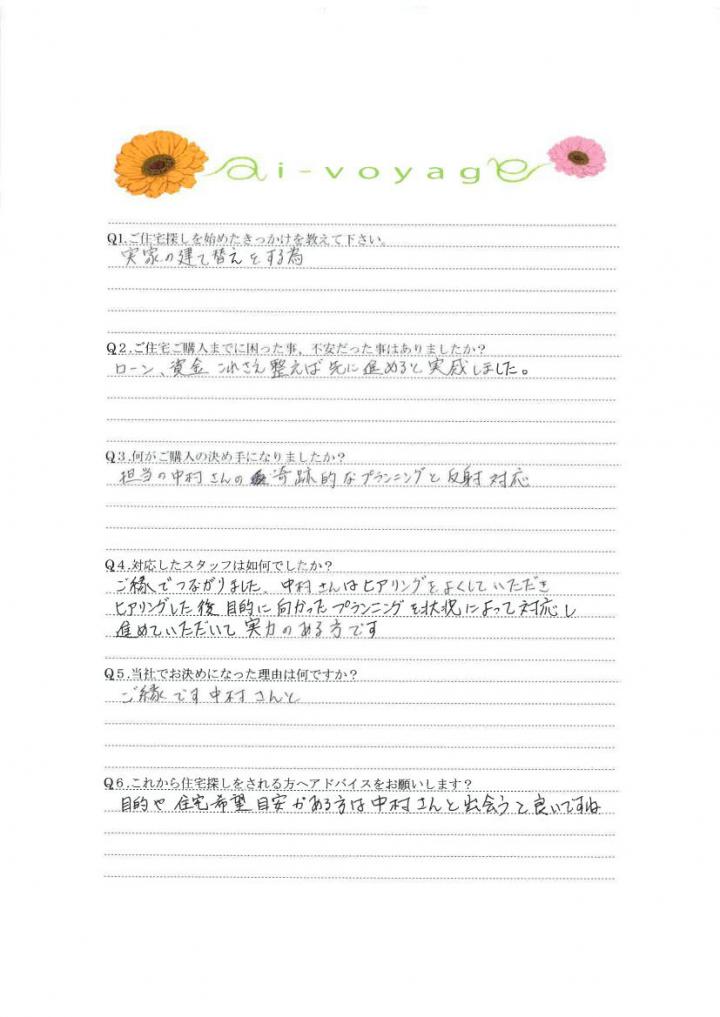 ai-voyage
Q1.ご住宅探しを始めたきっかけを教えて下さい。
実家の建て替えをする為
Q2.ご住宅ご購入までに困った事、不安だった事はありましたか？
ローン、資金 これさえ整えば先に進めると実感しました。
Q3.何がご購入の決め手になりましたか？
担当の中村さんの奇跡的なプランニングと反射対応
Q4.対応したスタッフは如何でしたか？
ご縁でつながりました、中村さんはヒアリングをよくしていただき
ヒアリングした後目的に向かったプランニングを状況によって対応し
進めていただいて実力のある方です
Q5.当社でお決めになった理由は何ですか？
ご縁です中村さんと
Q6.これから住宅探しをされる方へアドバイスをお願いします？
目的や住宅希望目安がある方は中村さんと出会うと良いですね